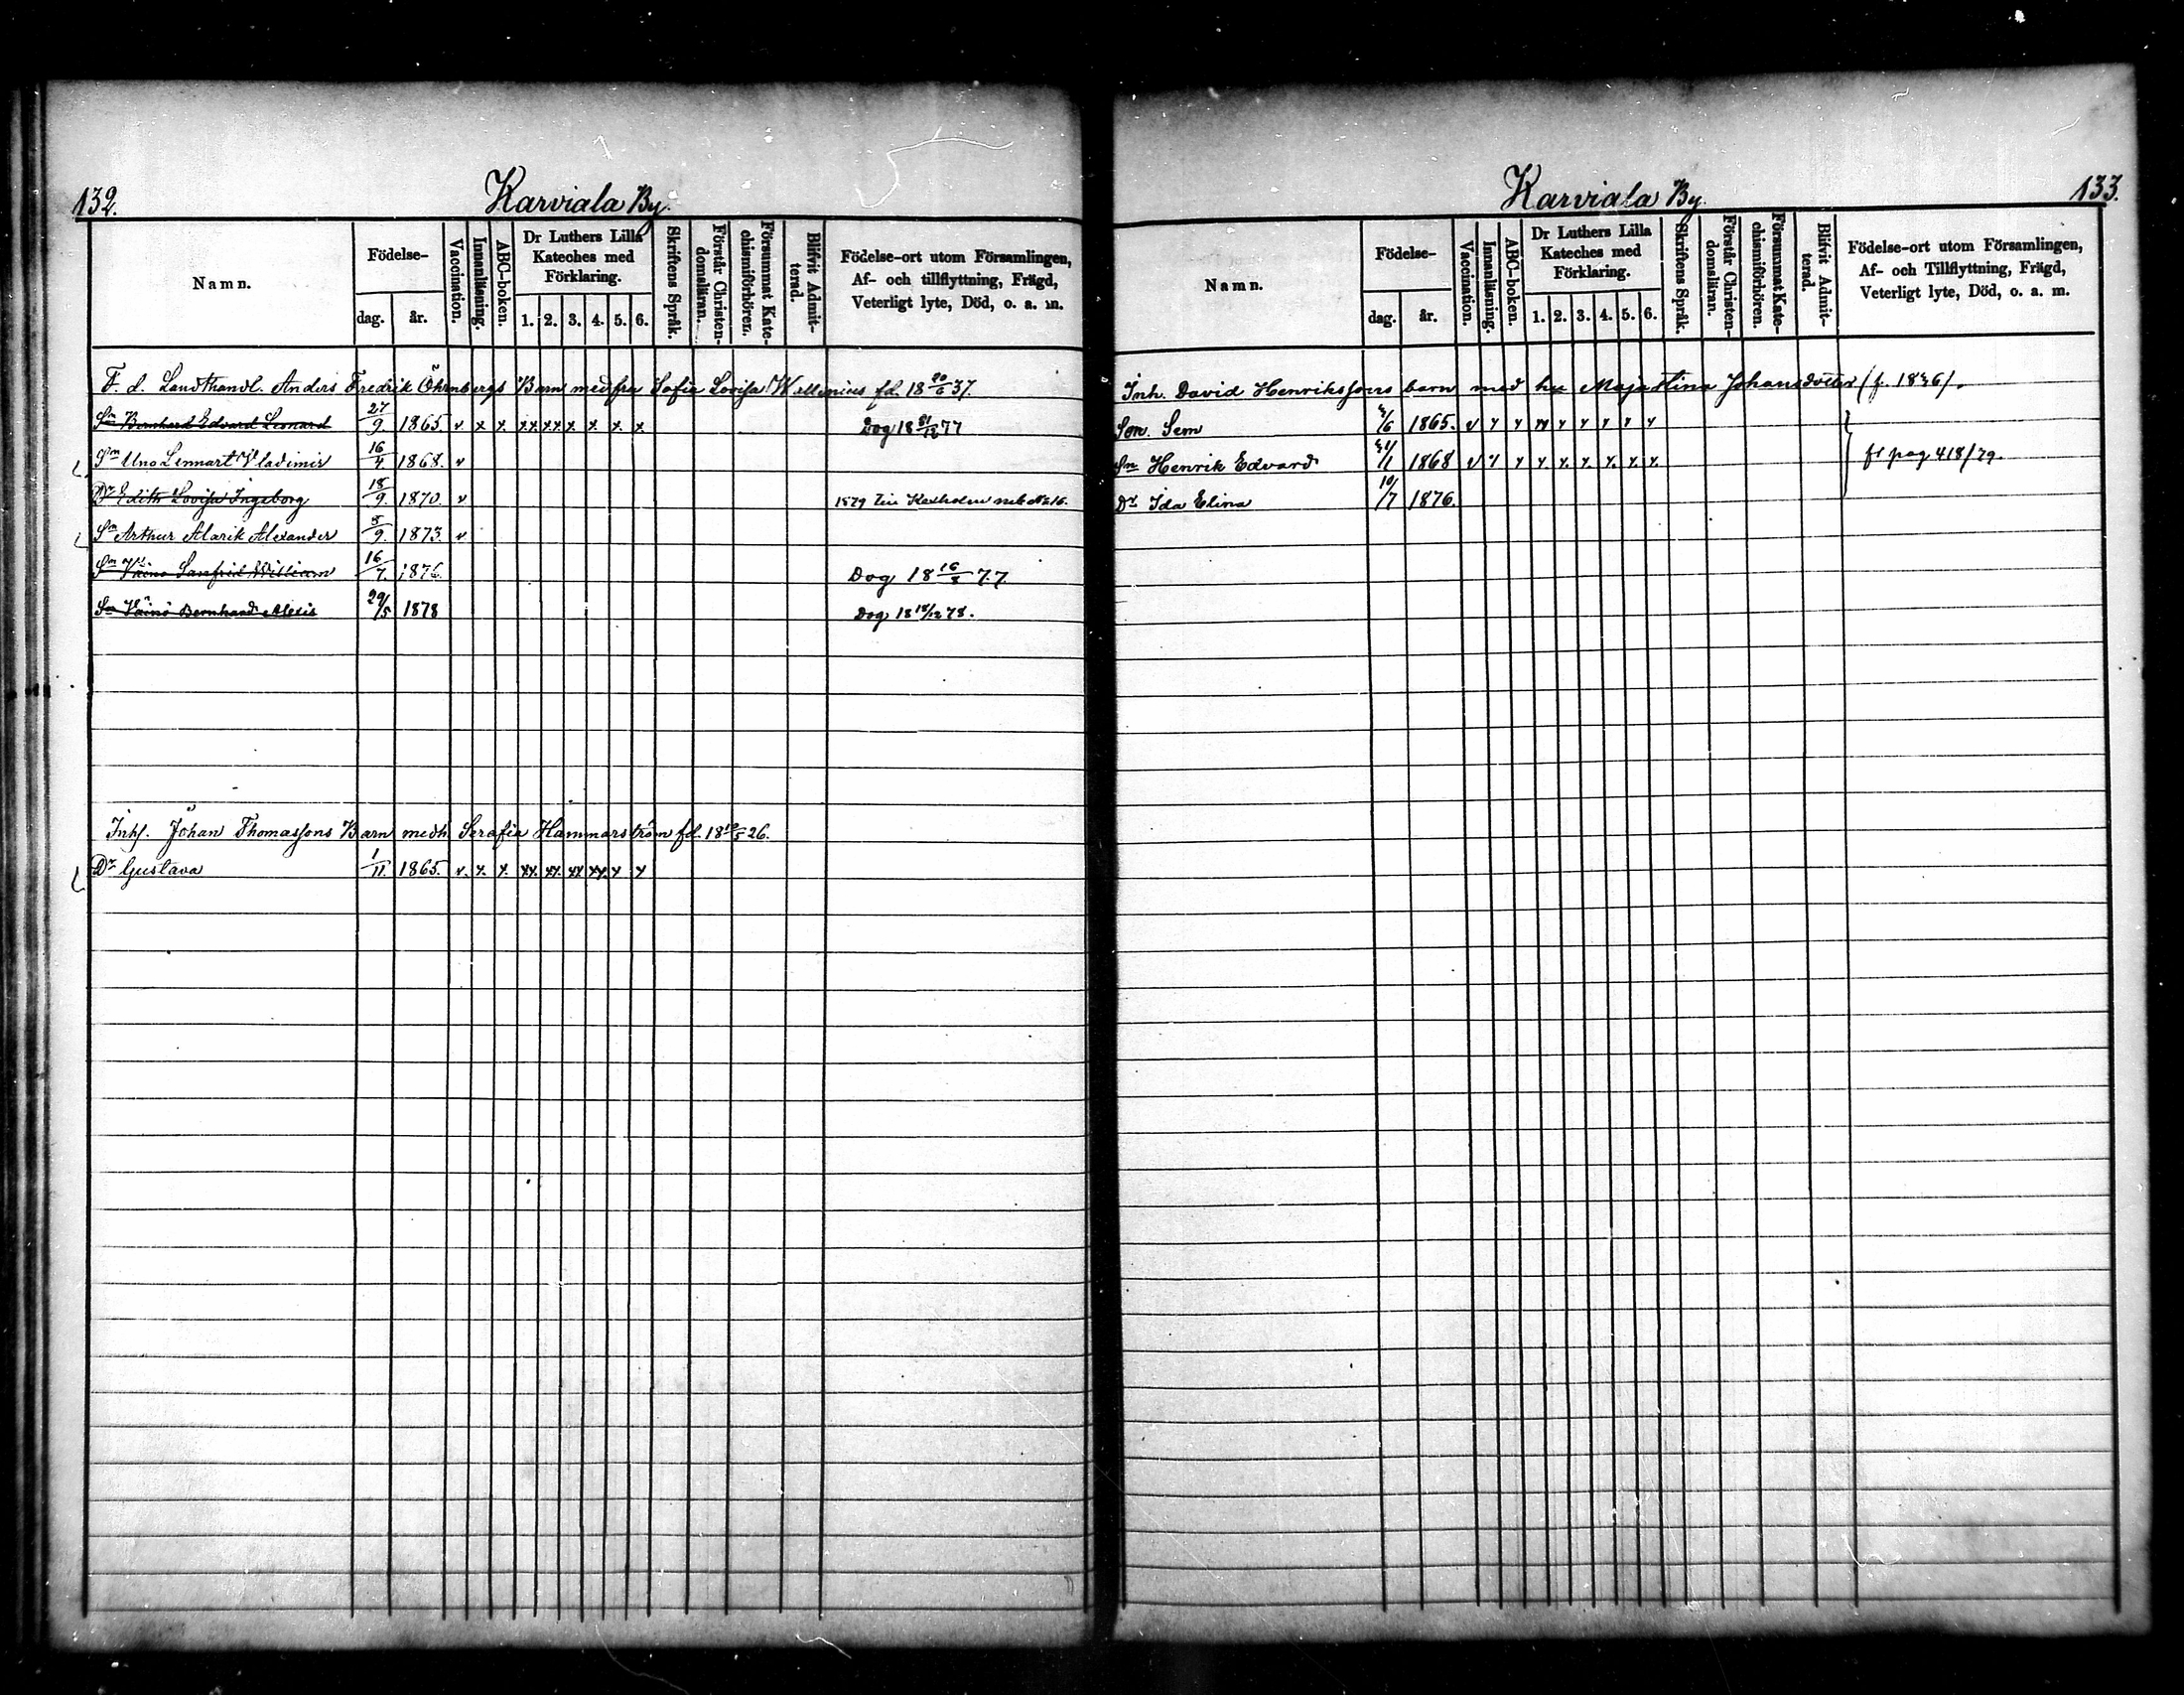 132.
Karviala By.
Namn.
Födelse-
dag.
år.
Vaccination.
Innanläsning.
ABC-boken.
Dr Luthers Lilla
Kateches med
Förklaring.
1. 2. 3. 4. 5. 6.
Skriftens Språk.
Förstår Christen-
domsläran.
Försummat Kate-
chismiförhören.
Blifvit Admit-
terad.
Födelse-ort utom Församlingen,
Af- och tillflyttning, Frägd,
Veterligt lyte, Död, o. a. m.
F. d. Landthandl. Anders Fredrik Öhrnbergs Barn med fru Sofia Lovisa Wallenius fd. 18 20/6 37.
Sn Bernhard Edvard Leonard 27/9 1865. v x x xx xx x x x x Dog 18 31/12 77
Sn Uno Lennart Vladimir 16/4 1868. v
Dr Edith Lovisa Ingeborg 18/9. 1870. v 1879 till Kexholm
Sn Arthur Alarik Alexander 5/9. 1873. v
Sn Väinö Sanfrid William 16/7. 1876. Dog 18 16/3 77
Sn Väinö Bernhard Alexis 29/5 1878 Dog 18 18/12 78.
Inhs. Johan Thomassons Barn med h. Serafia Hammarström fd. 18 10/5 26.
Dr Gustava 1/11. 1865. v. x. x. xx. xx. xx xx. x x
133.
Karviala By.
Namn.
Födelse-
dag.
år.
Vaccination.
Innanläsning.
ABC-boken.
Dr Luthers Lilla
Kateches med
Förklaring.
1. 2. 3. 4. 5. 6.
Skriftens Språk.
Förstår Christen-
domsläran.
Försummat Kate-
chismiförhören.
Blifvit Admit-
terad.
Födelse-ort utom Församlingen,
Af- och Tillflyttning, Frägd,
Veterligt lyte, Död, o. a. m.
Inh. David Henrikssons barn med hu Maja Stina Johansdotter (f. 1836).
Son. Sem 1865. v x x xx x x x x x
Sn Henrik Edvard 1868 v x x x. x. x. x. x. x. fr pag 418/79.
Dr Ida Elina 10/7 1876.